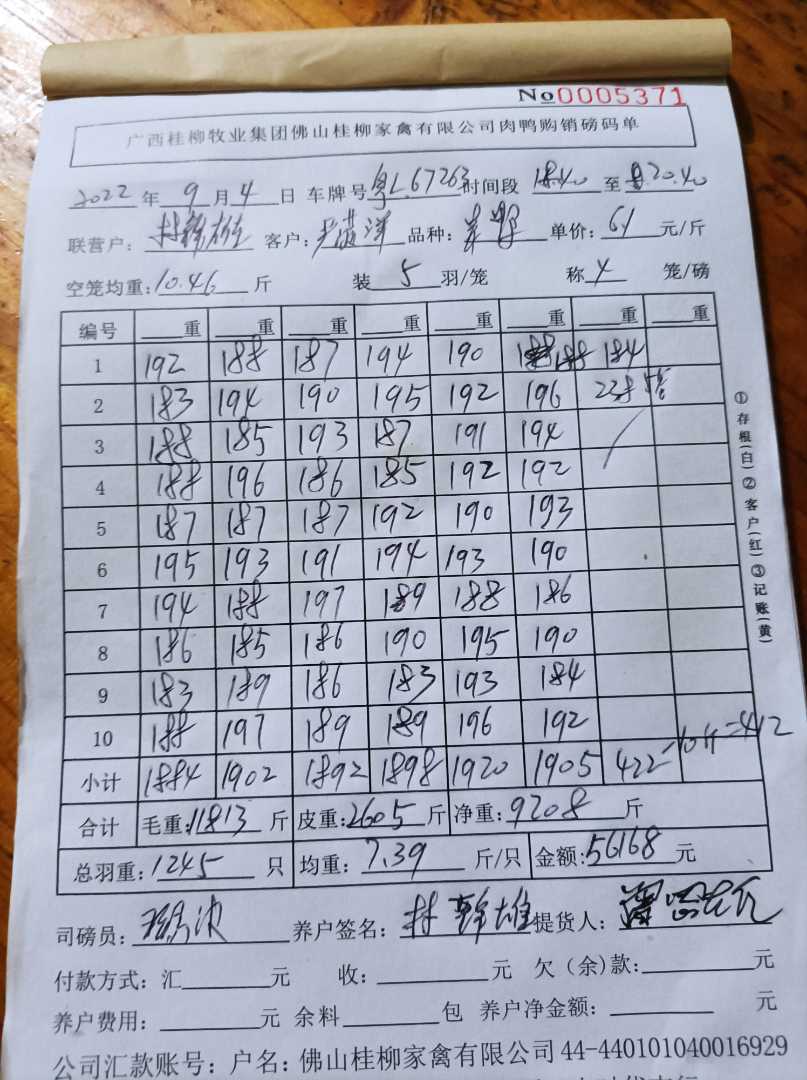 No 0005371
广西桂柳牧业集团佛山桂柳家禽有限公司肉鸭购销磅码单
2022 年 9 月 4 日 车牌号 粤L67263 时间段 18.40 至 20.40
联营户： 林锦雄 客户： 品种： 单价： 61 元/斤
空笼均重：10.46 斤 装 5 羽/笼 称 4 笼/磅
编号 重 重 重 重 重 重 重 重
1 192 188 187 194 190 188 184
2 183 194 190 195 192 196 238 5笼
3 188 185 193 187 191 194
4 188 196 186 185 192 192
5 187 187 187 192 190 193
6 195 193 191 194 193 190
7 194 188 197 189 188 186
8 186 185 186 190 195 190
9 183 189 186 183 193 184
10 188 197 189 189 196 192
小计 1884 1902 1892 1898 1920 1905 422-10斤=412
合计 毛重：11813 斤 皮重：2605 斤 净重：9208 斤
总羽重：1245 只 均重：7.39 斤/只 金额：56168 元
司磅员： 养户签名： 林锦雄 提货人：
付款方式：汇 元 收： 元 欠（余）款： 元
养户费用： 元 余料 包 养户净金额： 元
公司汇款账号：户名：佛山桂柳家禽有限公司 44-440101040016929
①存根（白）②客户（红）③记账（黄）